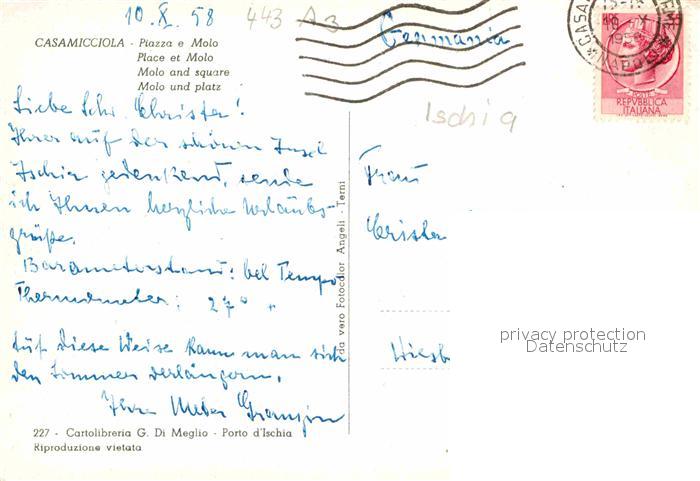 10.X.58
443 A3
CASAMICCIOLA - Piazza e Molo
Place et Molo
Molo and square
Molo und platz
Germania
CASA
NAPOLI
REPVBBLICA
ITALIANA
Ischia
Liebe Schw. Christa!
Ihrer auf der schönen Insel
Ischia gedenkend, sende
ich Ihnen herzliche Urlaubs-
grüße.
Barometerstand: bel Tempo
Thermometer: 27° "
Auf diese Weise kann man sich
den Sommer verlängern.
Ihre
Frau
Christa
Wiesb
da vero Fotocolor Angeli - Terni
privacy protection
Datenschutz
227 - Cartolibreria G. Di Meglio - Porto d'Ischia
Riproduzione vietata